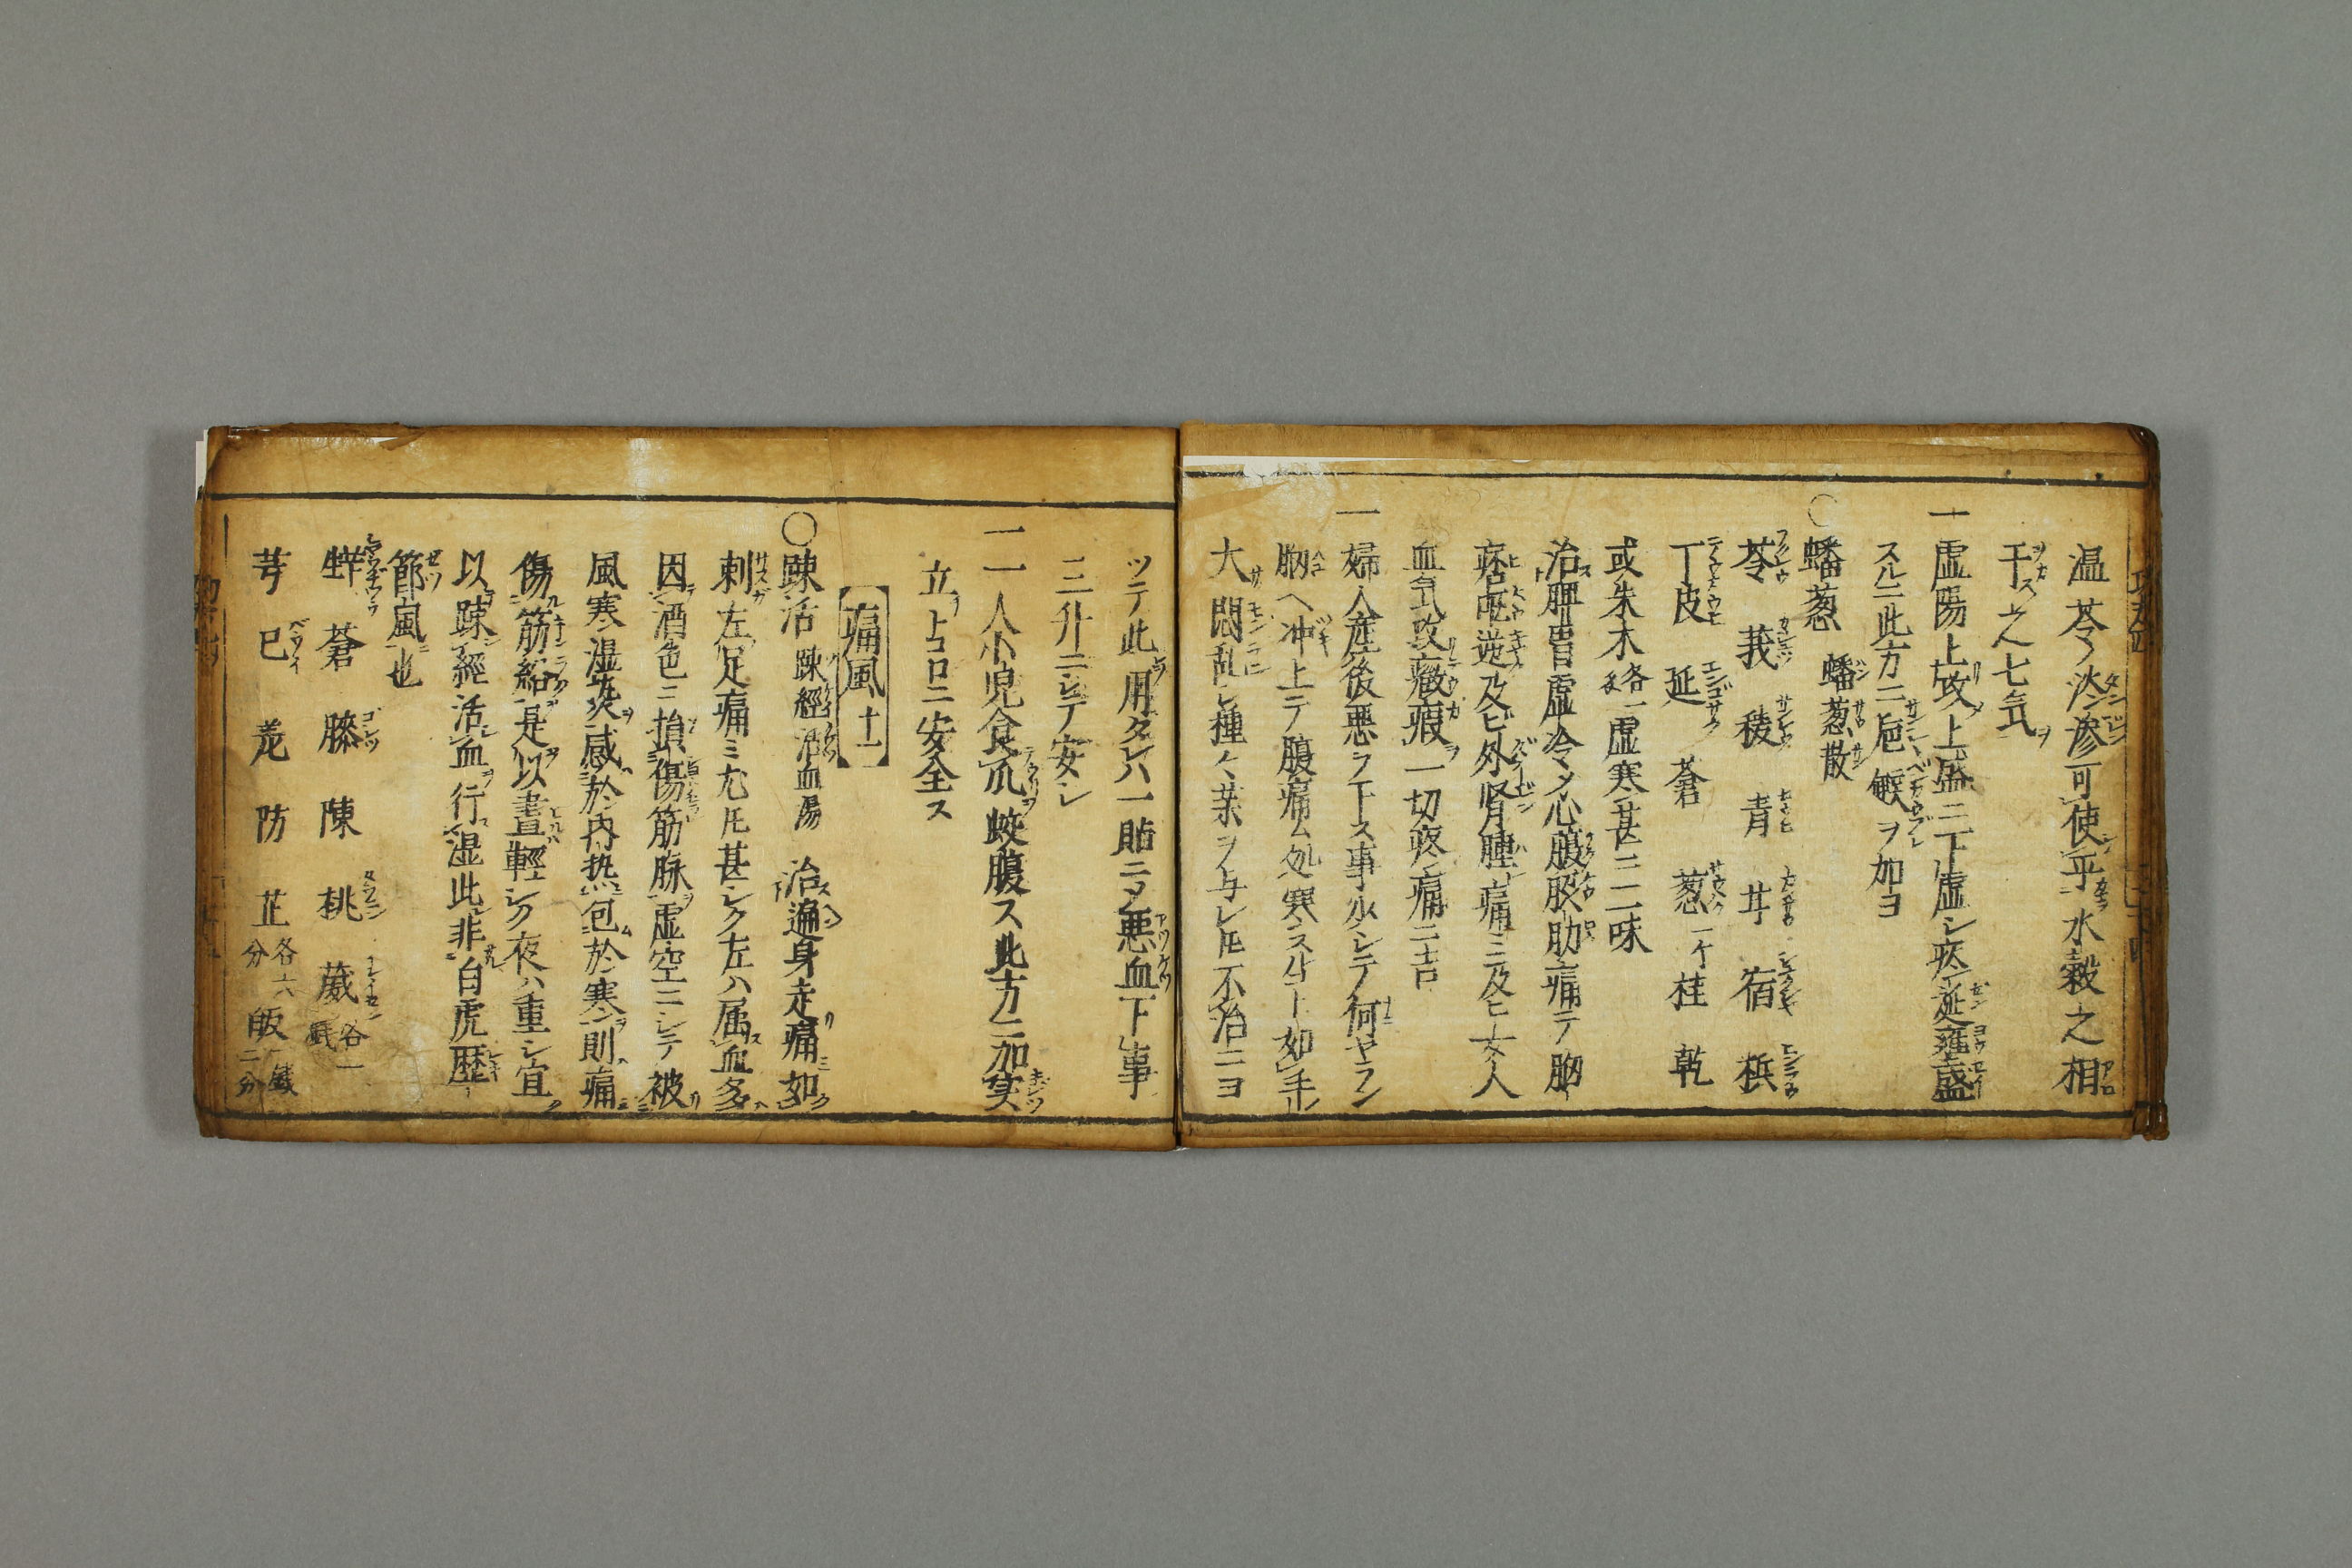 温苓淡滲可使平水穀之相
干ス之七気ヲ
一虚陽上攻メ上盛ニ下虚シ痰涎壅盛
スルニ此方ニ
ヲ加ヨ
○蟠葱 蟠葱散
苓 莪 稜 青 宿
丁皮 延 蒼 葱 桂 乾
或朱木各一虚寒甚ニ二味
治脾胃虚冷メ心腹 肋痛テ胸
及ヒ外腎腫痛ミ及ヒ女人
血気攻癥瘕ヲ一切疼痛ニ吉
一婦人産後悪ヲ下ス事少シテ何ヤラン
胸ヘ冲上テ腹痛ム処寒ス 如手
大悶乱シ種々薬ヲ与レ𪜈不治ニヨ
ツテ此ヲ用タレハ一貼ニメ悪血下事
三升ニシテ安シ
一人小児食瓜蛟腹ス此方ニ加実
立トコロニ安全ス
【痛風十一】
○踈活 踈經活血湯 治遍身走痛如ク
刺左足痛ミ尤𪜈甚シク左ハ属血多ハ
因酒色ニ損傷筋脉虚空ニシテ被
風寒湿 感於内熱包於寒則痛
傷筋絡是以晝輕シク夜ハ重シ宜ク
以踈經活血行湿此非白虎歴
節風也
蒼 膝 陳 桃 葳各一
芎 已 羌 防 芷各六分 二分